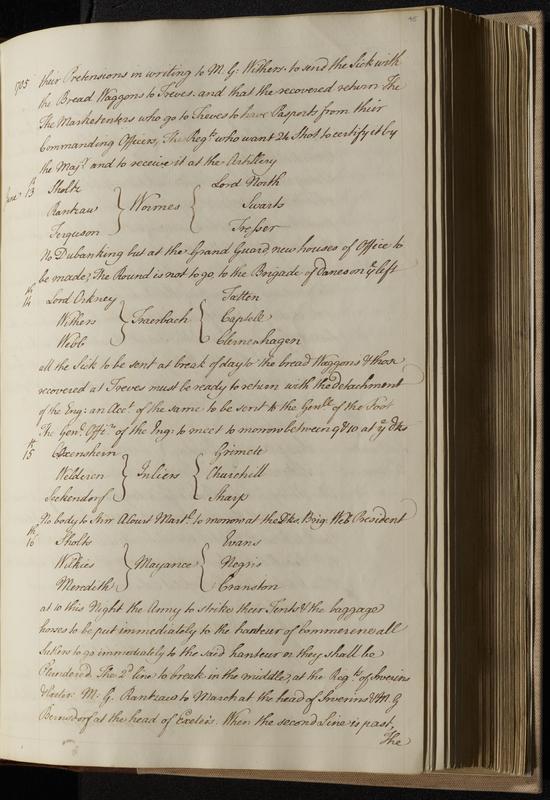 45
1705 their Pretensions in writing to M. G: Withers. to send the Sick with
the Bread Waggons to Treves. and that the recovered return The
The Marketenters who go to Treves to have Pasports from their
Commanding Officers, The Regts who want 24 Shot to certify it by
the Majr. and to receive it at the Artillery
June 13th Sholts Lord North
Rantzaw } Wormes { Swarts
Ferguson Tresser
No Dubanking but at the Grand Guard, new houses of Office to
be made, The Round is not to go, to the Brigade of Danes on ye left
14th Lord Orkney Tatten
Withers } Traerbach { Capsell
Webb Clernenhagen
all the Sick to be sent at break of day to the bread Waggons & those
recovered at Treves must be ready to return with the detachment
of the Eng: an Acct. of the same to be sent to the Genlls. of the Foot
The Genll. Offrs. of the Eng: to meet to morow between 9 & 10 at ye Dks
15th Oxenshern Grimett
Welderen } Inliers { Churchill
Seckendorf Sharp
No body to Stirr A Court Martl. to morow at the Dks. Brig. Webb President
16th Sholts Evans
Wilkies } Mayance { Negris
Meredith Cranston
at 10 this Night the Army to strike their Tents & the baggage
horses to be put immediately to the hauteur of Commeren all
Sutlers to go immediately to the said hauteur or they shall be
Plundered. The 2d. line to break in the middle, at the Regts of Sweins
& Exeter. M: G. Rantzaw to March at the head of Swerins & M. G
Bernsdorf at the head of Exeter's. When the second Line is past,
The